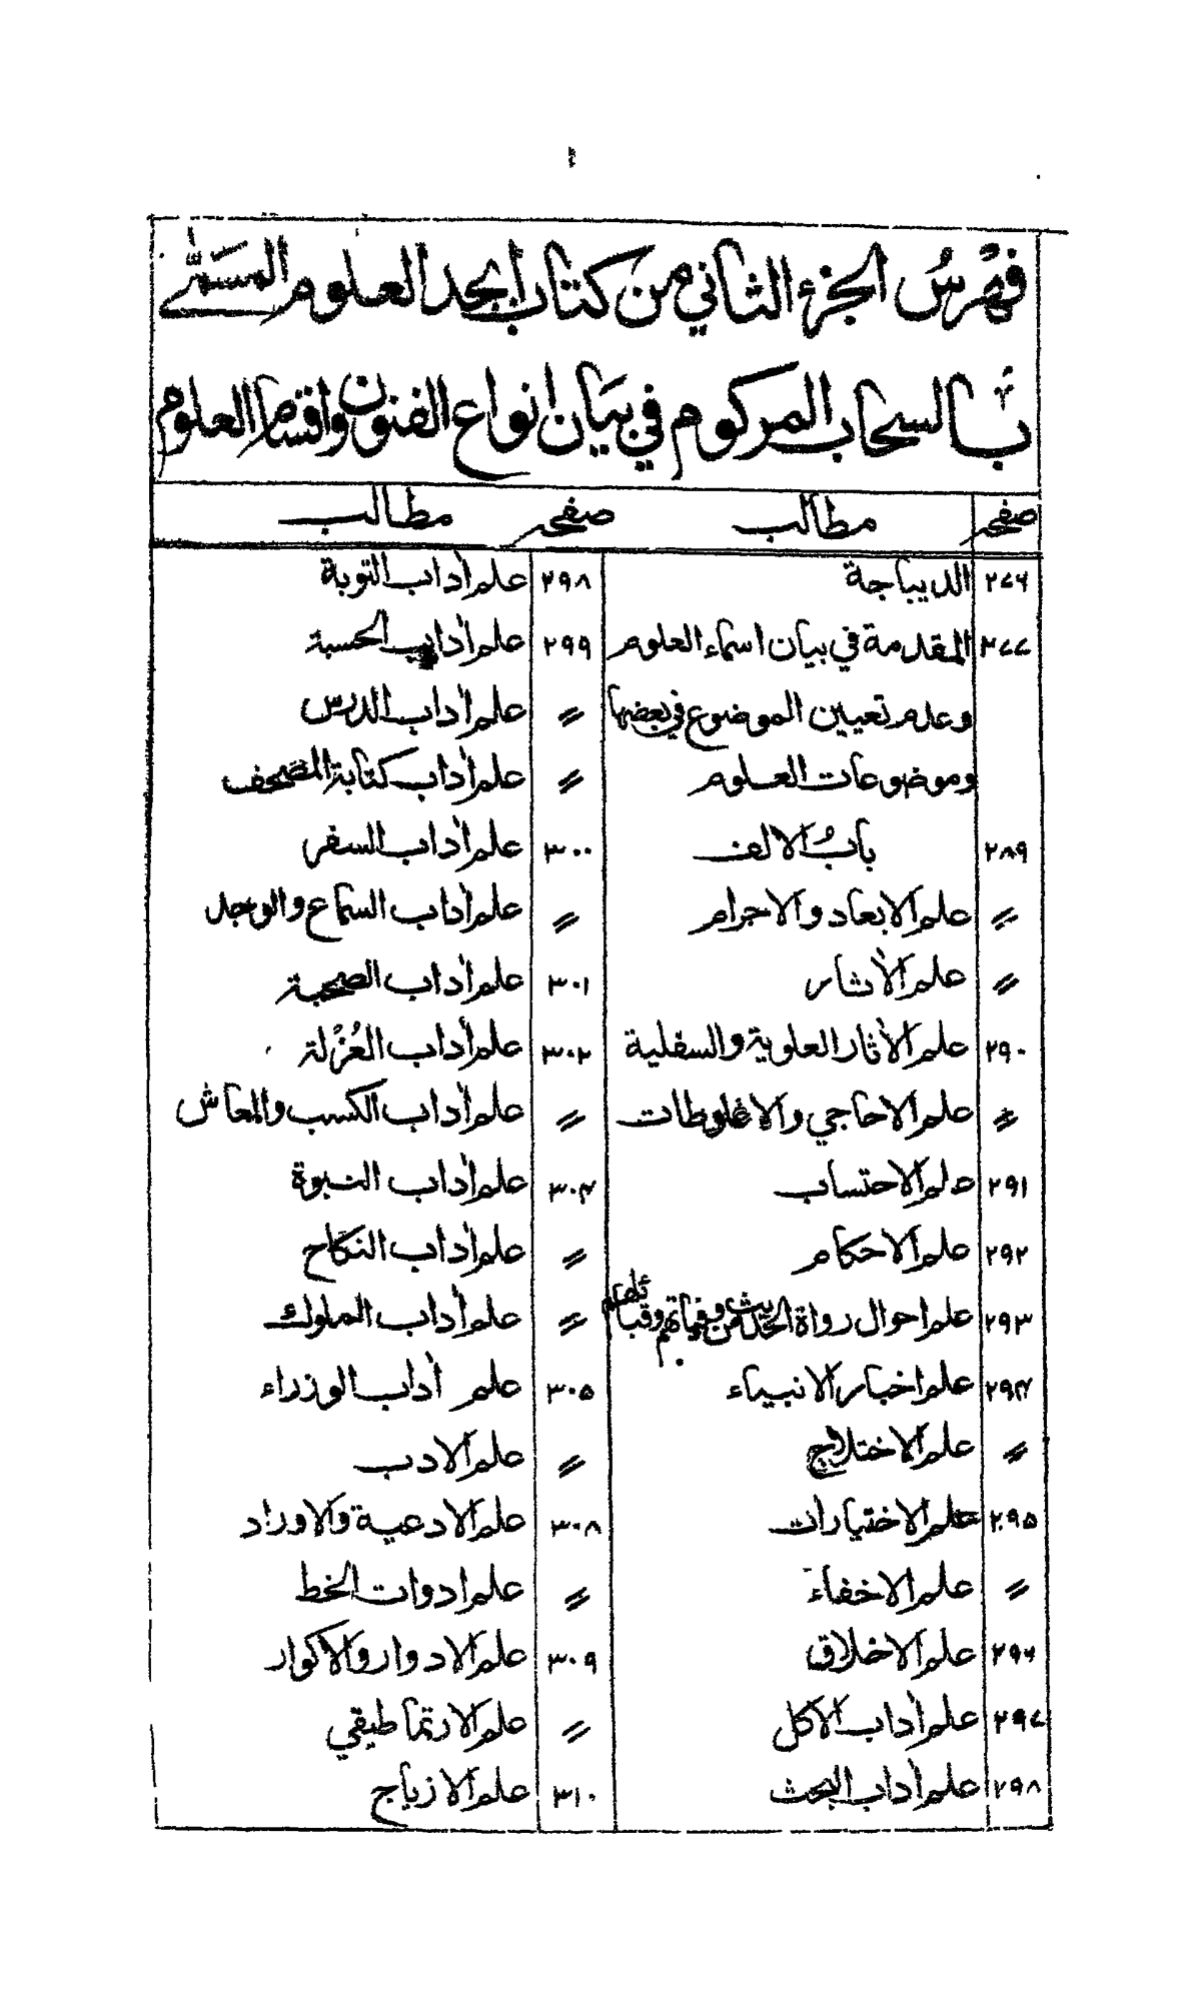 فهرس الجزء الثاني من كتاب ابجد العلوم المسمى
بالسحاب المركوم في بيان انواع الفنون واقسام العلوم
صفحہ مطالب صفحہ مطالب
٢٧٦ الديباجة ٢٩٨ علم اٰداب التوبة
٢٧٧ المقدمة في بيان اسماء العلوم ٢٩٩ علم اٰداب الحسبة
وعدم تعيين الموضوع في بعضها 〃 علم اٰداب الدرس
وموضوعات العلوم 〃 علم اٰداب كتابة المصحف
٢٨٩ بابُ الالف ٣٠٠ علم اٰداب السفر
〃 علم الابعاد والاجرام 〃 علم اٰداب السماع والوجد
〃 علم الاٰثار ٣٠١ علم اٰداب الصحبة
٢٩٠ علم الاٰثار العلوية والسفلية ٣٠٢ علم اٰداب العُزْلة
〃 علم الاحاجي والاغلوطات 〃 علم اٰداب الكسب والمعاش
٢٩١ علم الاحتساب ٣٠٤ علم اٰداب النبوة
٢٩٢ علم الاحكام 〃 علم اٰداب النكاح
٢٩٣ علم احوال رواة الحديث من وفياتهم وقبائلهم 〃 علم اٰداب الملوك
٢٩٤ علم اخبار الانبياء ٣٠٥ علم اٰداب الوزراء
〃 علم الاختلاج 〃 علم الادب
٢٩٥ علم الاختيارات ٣٠٨ علم الادعية والاوراد
〃 علم الاخفاء 〃 علم ادوات الخط
٢٩٦ علم الاخلاق ٣٠٩ علم الادوار والاكوار
٢٩٧ علم اٰداب الاكل 〃 علم الارتماطيقي
٢٩٨ علم اٰداب البحث ٣١٠ علم الازياج